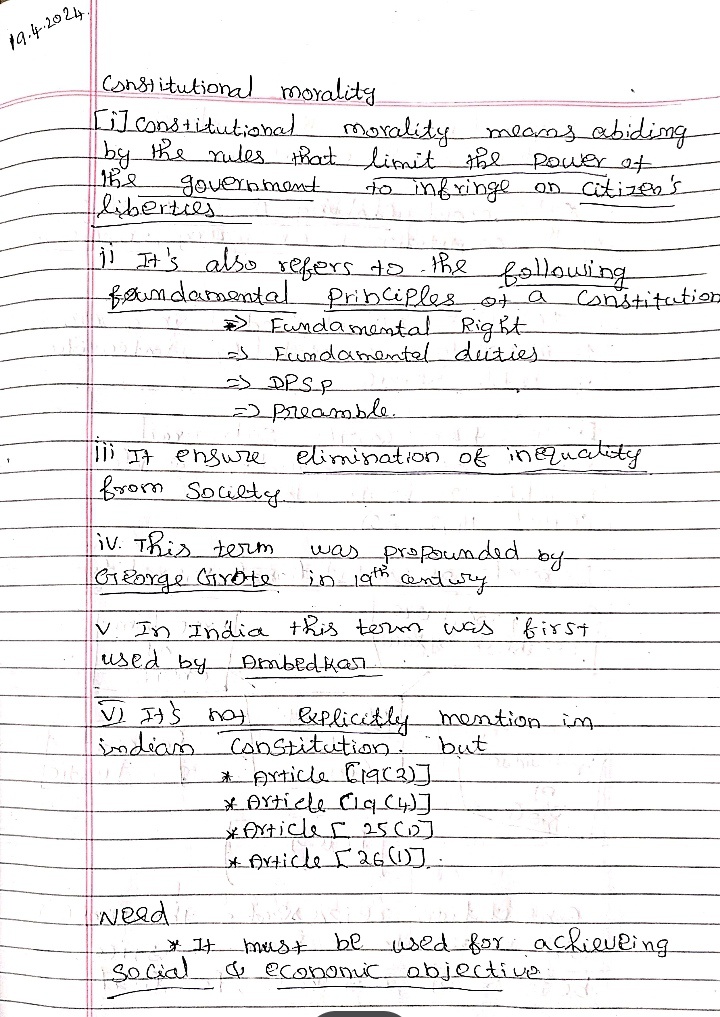 19.4.2024.
Constitutional morality
[i] Constitutional morality means abiding
by the rules that limit the power of
the government to infringe on citizen's
liberties
ii It's also refers to the following
foundamental principles of a constitution
=> Fundamental Right
=> Fundamental duties
=> DPSP
=> Preamble.
iii It ensure elimination of inequality
from Society.
iv. This term was propounded by
George Grote in 19th century
v. In India this term was first
used by Ambedkar
vi It's not Explicitly mention in
indian constitution. but
* Article [19(2)]
* Article [19(4)]
* Article [25(1)]
* Article [26(1)].
Need
* It must be used for achieveing
social & economic objective